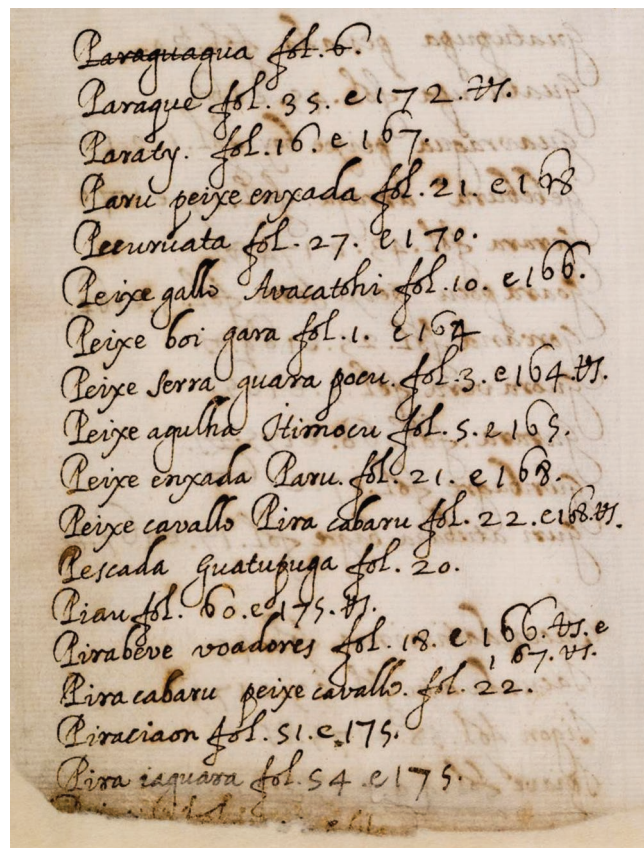 Paraguagua fol. 6.
Paraque fol. 35. e 172. vs.
Paraty. fol. 16. e 167.
Paru peixe enxada fol. 21. e 168
Pecuruata fol. 27. e 170.
Peixe gallo Avacatohi fol. 10. e 166.
Peixe boi gara fol. 1. e 164
Peixe serra guara pocu. fol. 3. e 164. vs.
Peixe agulha Itimocu fol. 5. e 165.
Peixe enxada Paru. fol. 21. e 168.
Peixe cavallo Pira cabaru fol. 22. e 168. vs.
Pescada Guatupuga fol. 20.
Piau fol. 60. e 175. vs.
Pirabeve voadores fol. 18. e 166. vs. e
167. vs.
Pira cabaru peixe cavallo. fol. 22.
Piraciaon fol. 51. e 175.
Pira iaquara fol. 54. e 175.